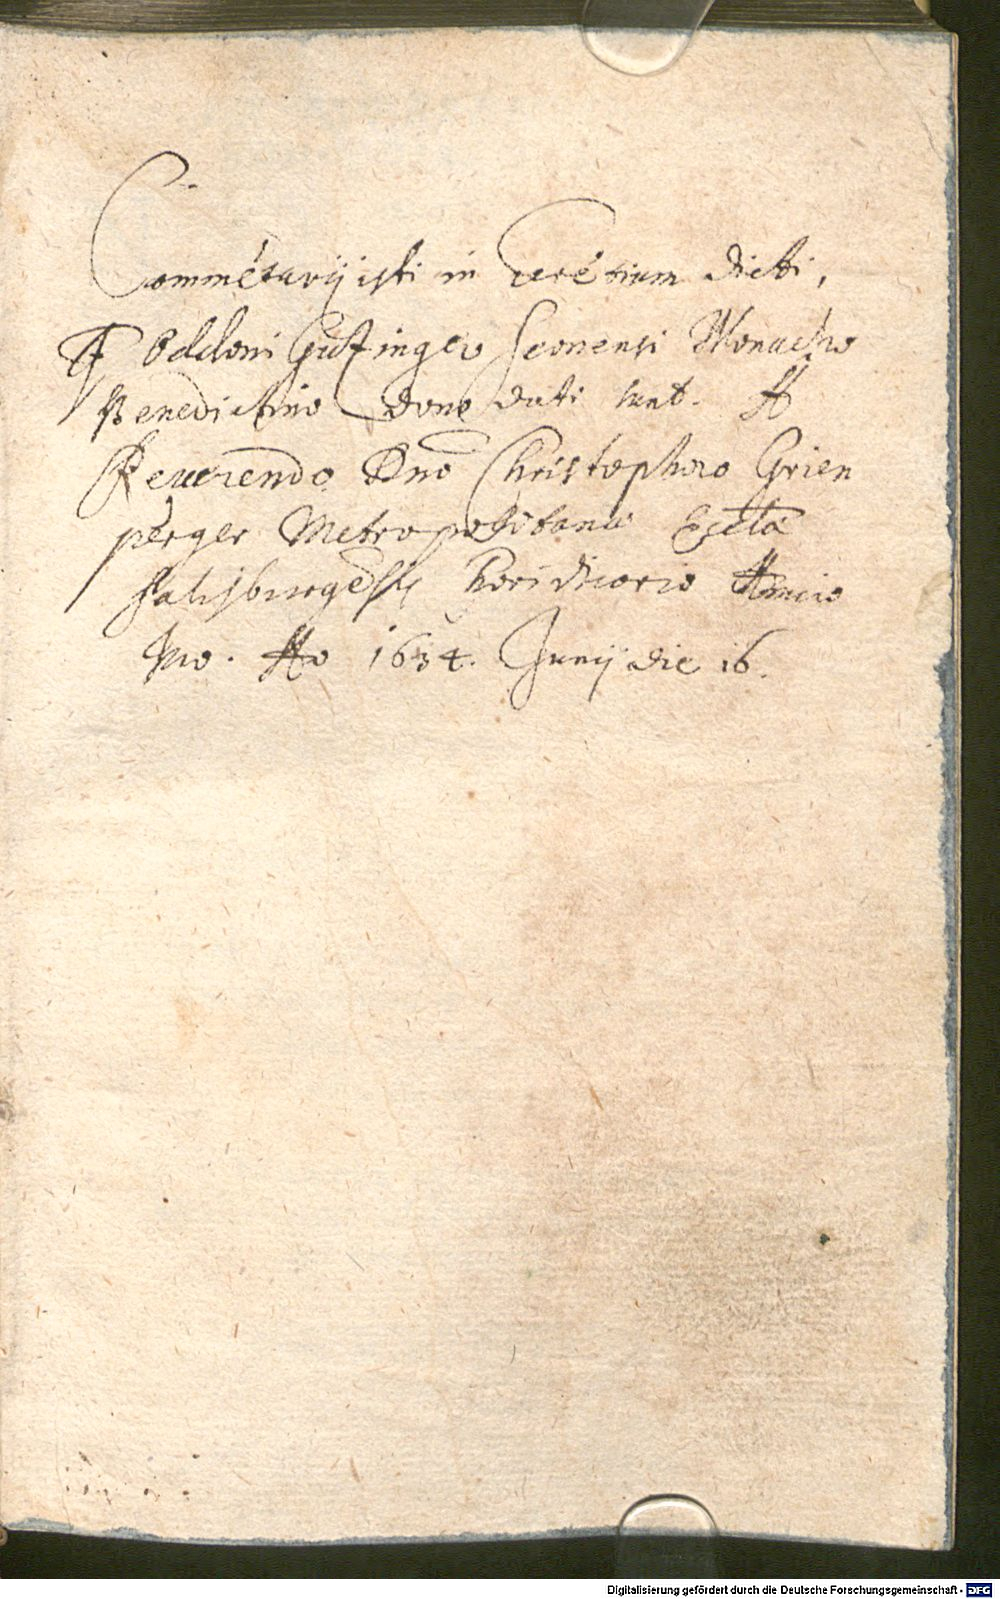 Commētarij isti in Terētium dicti,
F. Odiloni Gutzinger Seonensi Monacho
Benedictino dono dati sunt. A
Reuerendo Dnō Christophoro Grien
perger Metropolitanæ Ecclæ
Salisburgēsis Amico
Mo. Ao 1634. Junij die 16.
Digitalisierung gefördert durch die Deutsche Forschungsgemeinschaft - DFG